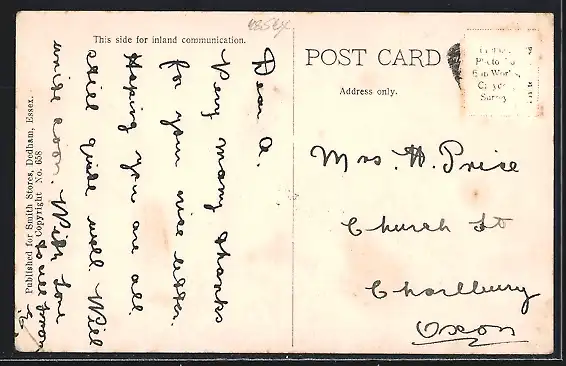 4856x
This side for inland communication.
Dear A.
Very many thanks
for your nice letter.
Hoping you are all
still quite well. Will
write soon. With love
to all from
Published for Smith Stores, Dedham, Essex.
Copyright No. 658
POST CARD
Address only.
Photo
Works,
Surrey
Mrs. H. Price
Church St
Charlbury
Oxon